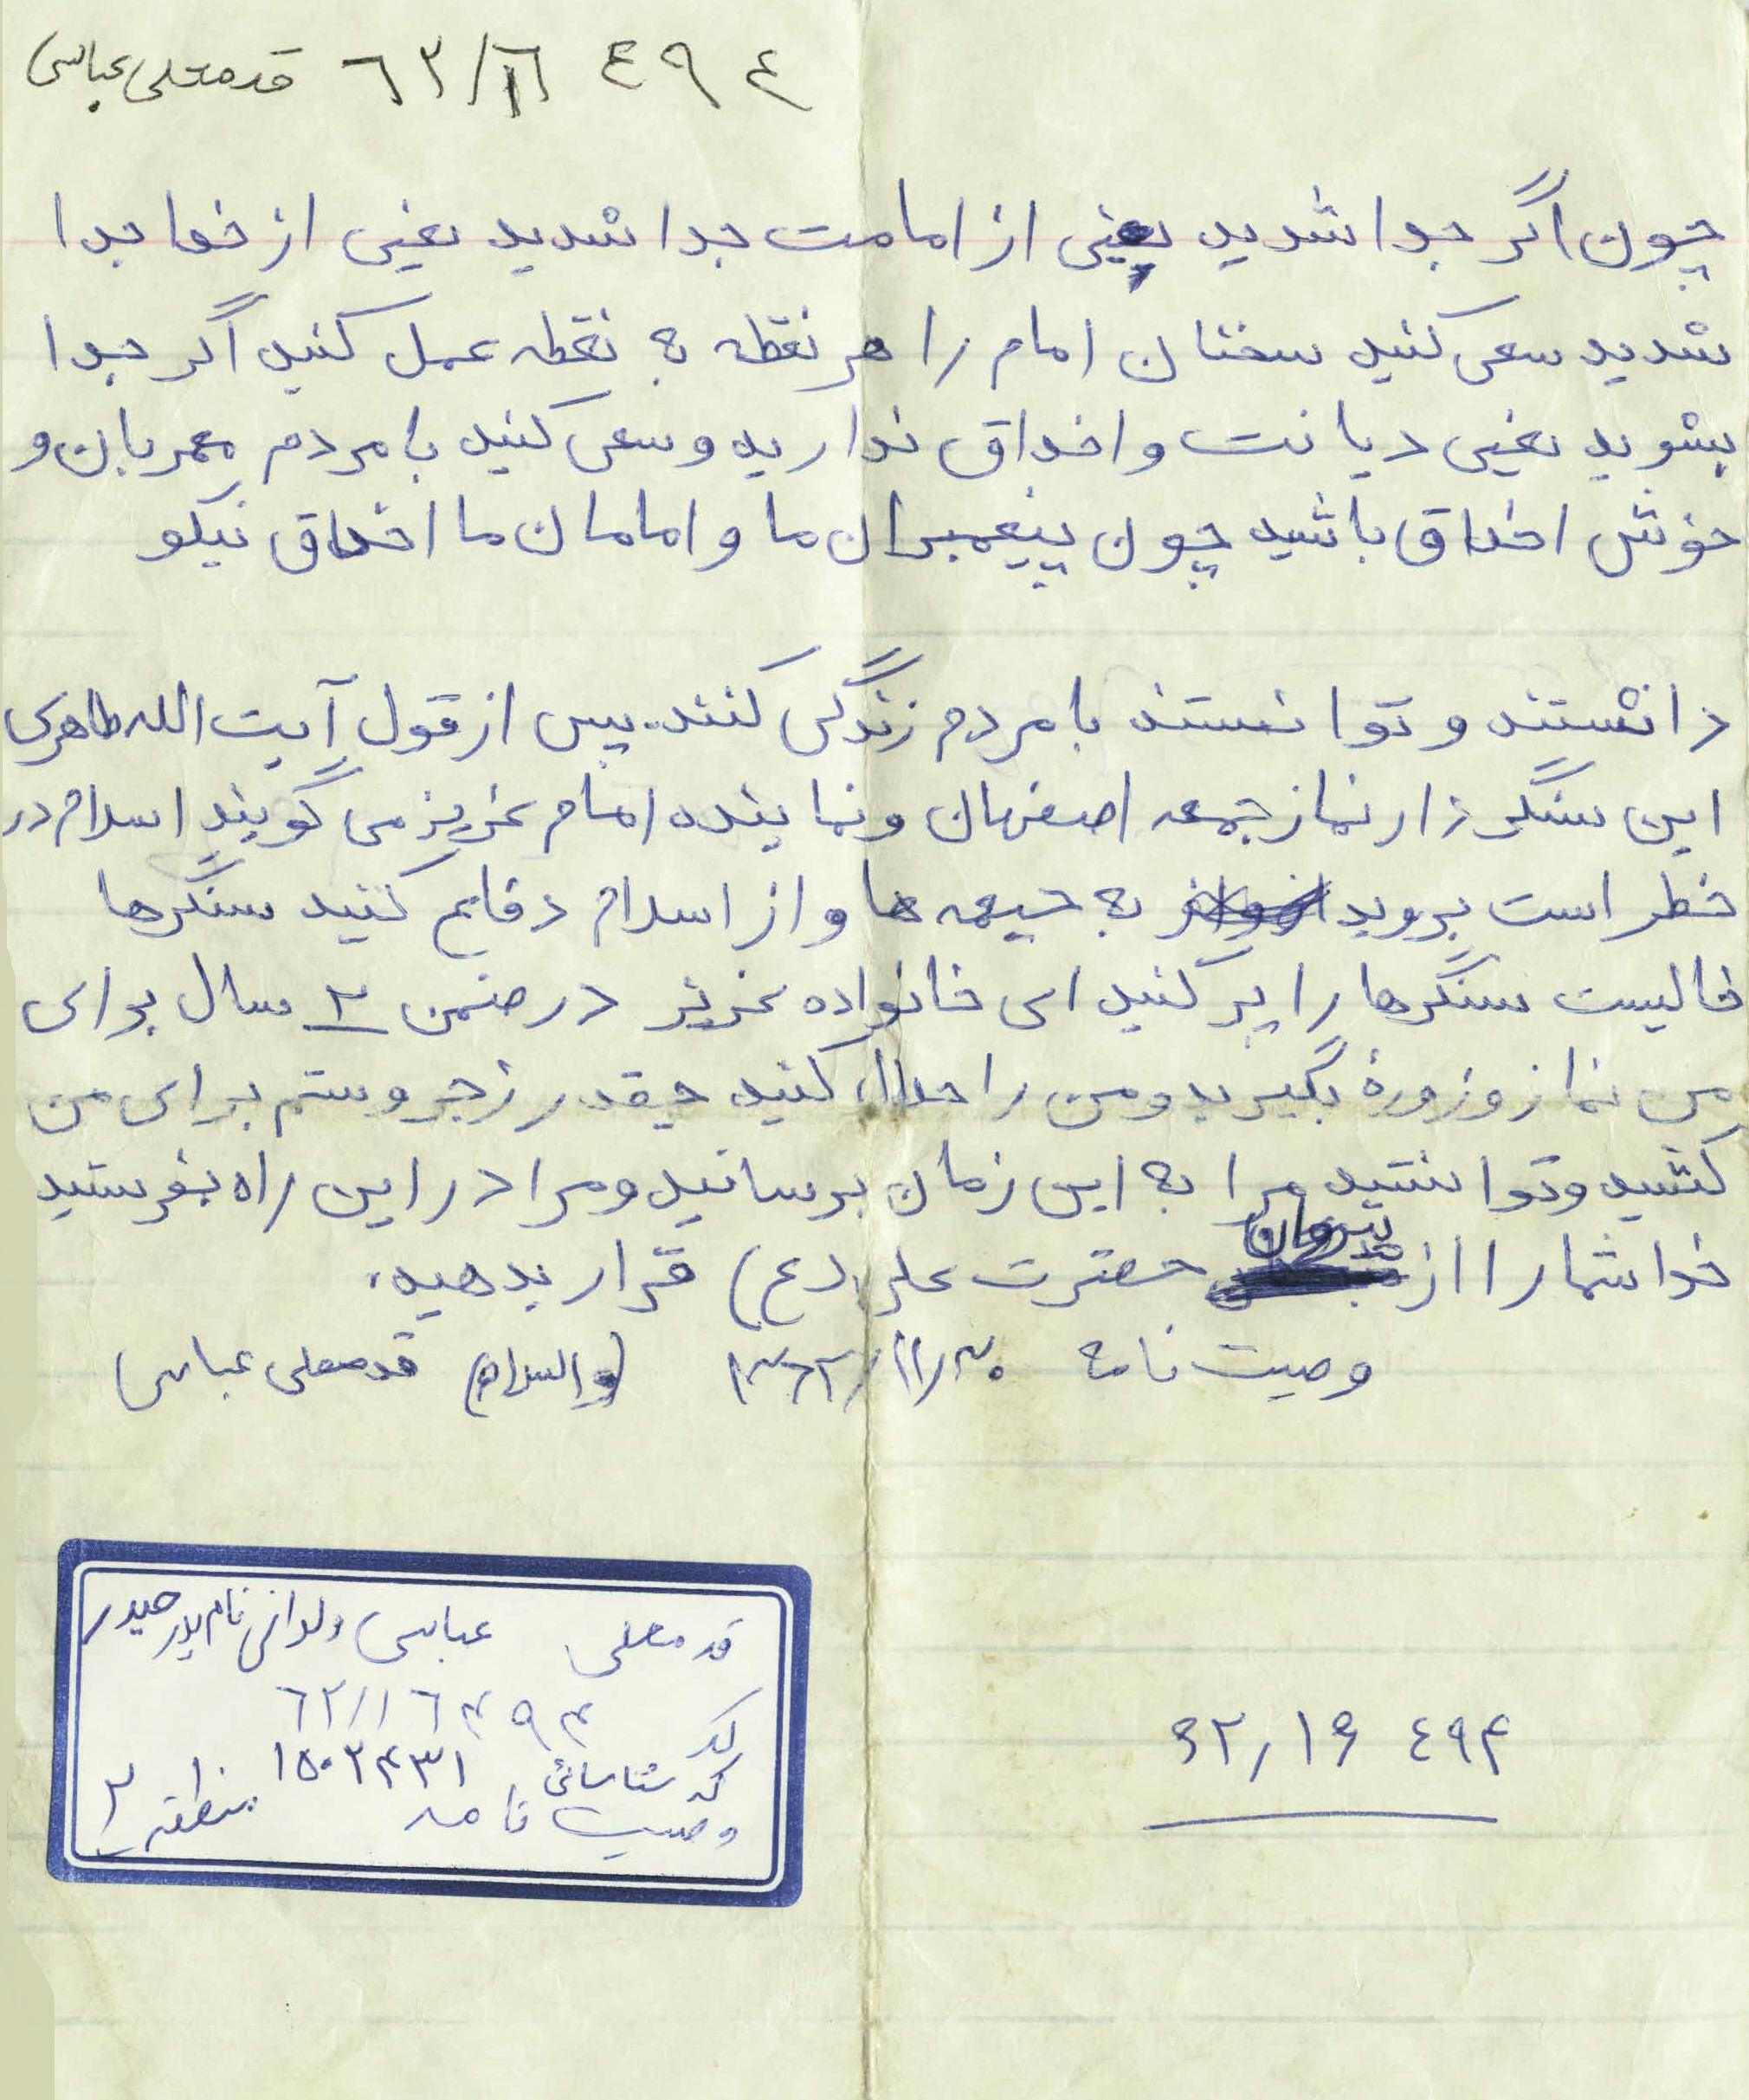 ٤٩٤ ٦٢/١٦ قدمعلی عباسی
چون اگر جدا شدید یعنی از امامت جدا شدید یعنی از خدا جدا
شدید سعی کنید سخنان امام را هر نقطه به نقطه عمل کنید اگر جدا
بشوید یعنی دیانت و اخلاق ندارید و سعی کنید با مردم مهربان و
خوش اخلاق باشید چون پیغمبران ما و امامان ما اخلاق نیکو
دانشتند و توانستند با مردم زندگی کنند. پس از قول آیت الله طاهری
این سنگر دار نماز جمعه اصفهان و نماینده امام عزیز می گویند اسلام در
خطر است بروید به جبهه ها و از اسلام دفاع کنید سنگرها
خالیست سنگرها را پر کنید ای خانواده عزیز در ضمن ۲ سال برای
من نماز و روزه بگیرید و من را حلال کنید چقدر زجر و ستم برای من
کشید و توانستید مرا به این زمان برسانید و مرا در این راه بفرستید
خدا شما را از پیروان حضرت علی (ع) قرار بدهید.
وصیت نامه ۱۳۶۲/۱۱/۳۰ والسلام قدمعلی عباسی
قدمعلی عباسی ولدانی نام پدر حیدر
کد ۶۲/۱۶ ۴۹۴
کد شناسائی ۱۵۰۲۴۳۱
وصیت نامه منطقه ۲
۶۲/۱۶ ٤۹۴